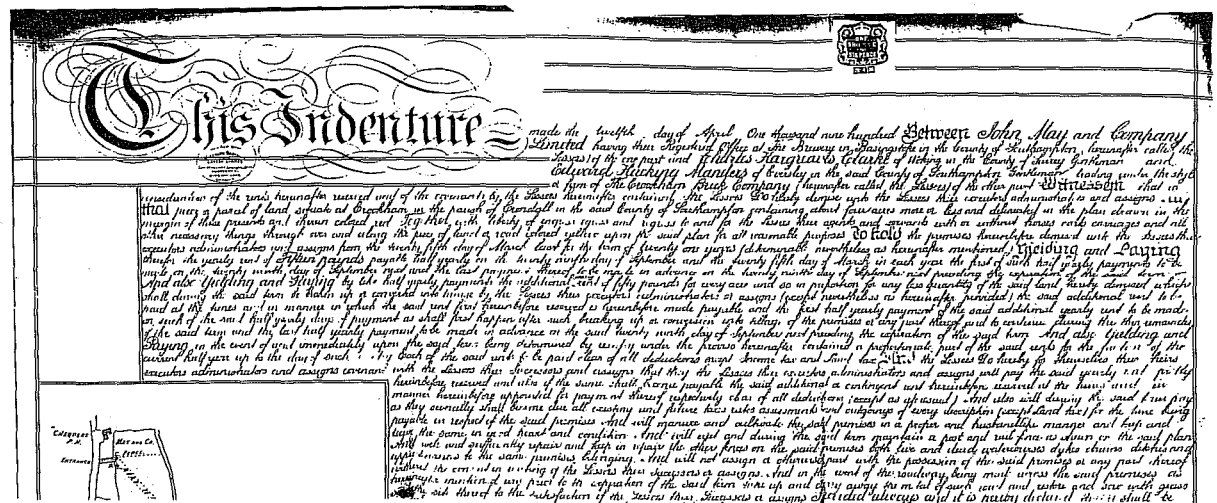 This Indenture
made the twelfth day of April One thousand nine hundred Between John May and Company
Limited having their Registered Office at The Brewery in Basingstoke in the County of Southampton hereinafter called the
Lessors of the one part and Charles Hargrave Clarke of Woking in the County of Surrey Gentleman and
Edward Hutching Manders of Eversley in the said County of Southampton Gentleman trading under the style
or firm of The Crookham Brick Company (hereinafter called the Lessees) of the other part Witnesseth that in
consideration of the rents hereinafter reserved and of the covenants by the Lessees hereinafter contained the Lessors Do hereby demise unto the Lessees their executors administrators and assigns All
that piece or parcel of land situate at Crookham in the parish of Crondall in the said County of Southampton containing about four acres more or less and delineated on the plan drawn in the
margin of these presents and thereon colored red Together with liberty of ingress egress and regress to and for the Lessees their agents and servants with or without horses carts carriages and all
other necessary things through over and along the piece of land or road colored yellow upon the said plan for all reasonable purposes To hold the premises hereby demised unto the Lessees their
executors administrators and assigns from the twenty fifth day of March last for the term of twenty one years (determinable nevertheless as hereinafter mentioned) Yielding and Paying
therefor the yearly rent of fifteen pounds payable half yearly on the twenty ninth day of September and the twenty fifth day of March in each year the first of such half yearly payments to be
made on the twenty ninth day of September next and the last payment thereof to be made in advance on the twenty ninth day of September next preceding the expiration of the said term
And also Yielding and Paying by like half yearly payments the additional rent of fifty pounds for every acre and so in proportion for any less quantity of the said land hereby demised which
shall during the said term be broken up or converted into tillage by the Lessees their executors administrators or assigns (except nevertheless as hereinafter provided) the said additional rent to be
paid at the times and in manner in which the said rent first hereinbefore reserved is hereinbefore made payable and the first half yearly payment of the said additional yearly rent to be made
on such of the said half yearly days of payment as shall first happen after such breaking up or conversion into tillage of the premises or any part thereof and to continue during the then remainder
of the said term and the last half yearly payment to be made in advance on the said twenty ninth day of September next preceding the expiration of the said term And also Yielding and
Paying in the event of and immediately upon the said term being determined by under the proviso hereinafter contained a proportionate part of the said rents for the fraction of the
current half year up to the day of such each of the said rents to be paid clear of all deductions except Income tax and Land tax And the Lessees Do hereby for themselves their heirs
executors administrators and assigns covenant with the Lessors their successors and assigns that they the Lessees their executors administrators and assigns will pay the said yearly rent firstly
hereinbefore reserved and also if the same shall become payable the said additional or contingent rent hereinbefore reserved at the times and in
manner hereinbefore appointed for payment thereof respectively clear of all deductions (except as aforesaid) And also will during the said term pay
as they annually shall become due all existing and future taxes rates assessments and outgoings of every description (except Land tax) for the time being
payable in respect of the said premises And will manure and cultivate the said premises in a proper and husbandlike manner and keep and
leave the same in good heart and condition And will erect and during the said term maintain a post and rail fence as shown on the said plan
And well and sufficiently repair and keep in repair the other fences on the said premises both live and dead watercourses dykes drains ditches and
appurtenances to the same premises belonging And will not assign or otherwise part with the possession of the said premises or any part thereof
without the consent in writing of the Lessors their successors or assigns And in the event of the roadway being made across the said premises as
hereinafter mentioned any prior to the expiration of the said term take up and carry away the metal of such road and restore and sow with grass
the site thereof to the satisfaction of the Lessors their successors or assigns Provided always and it is hereby declared that it shall be
CHEQUERS
P.H.
MAY AND CO.
ENTRANCE